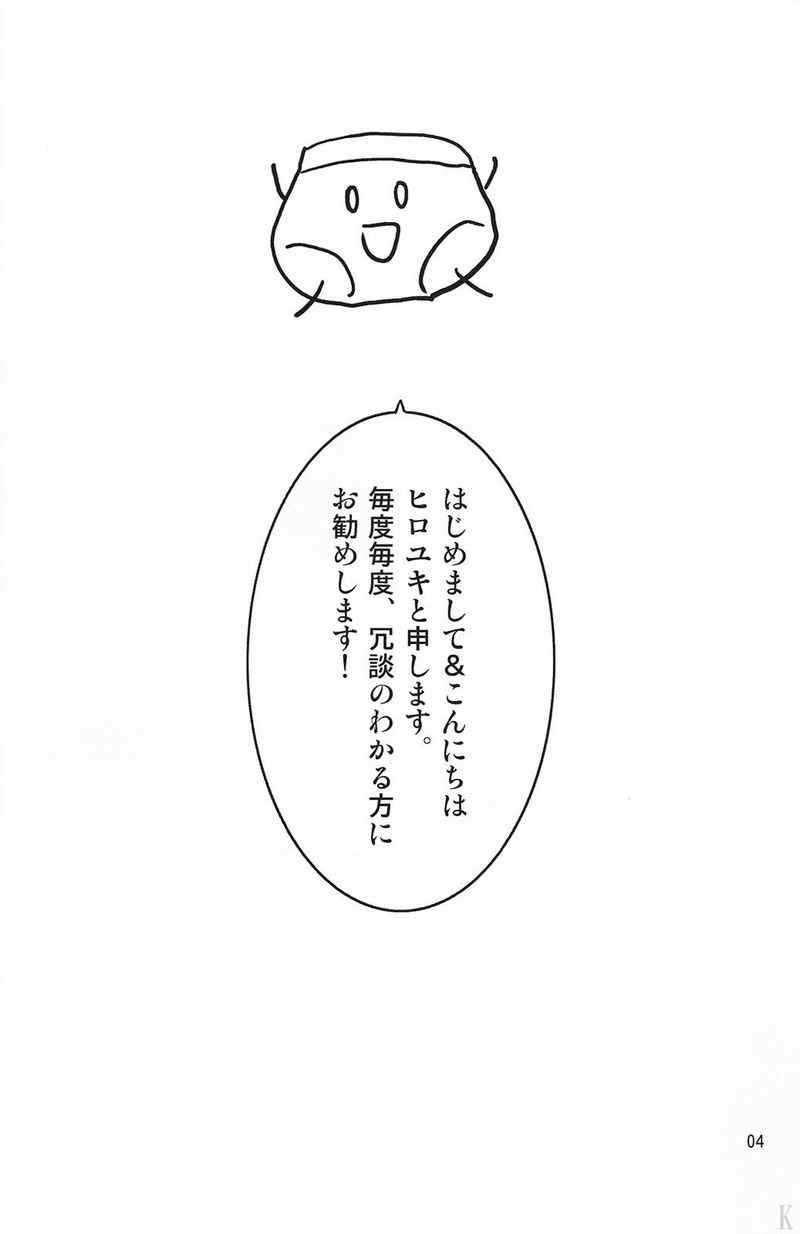 はじめまして&こんにちは
ヒロユキと申します。
毎度毎度、冗談のわかる方に
お勧めします!
04
K